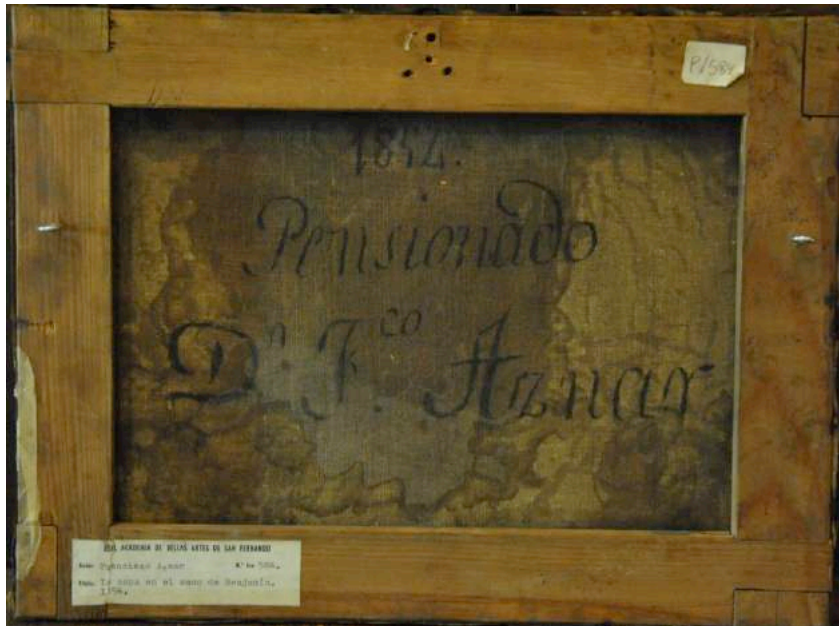 P/584
1854.
Pensionado
Dn. Fco. Aznar
REAL ACADEMIA DE BELLAS ARTES DE SAN FERNANDO
Francisco Aznar Nº 584.
La copa en el saco de Benjamín.
1854.